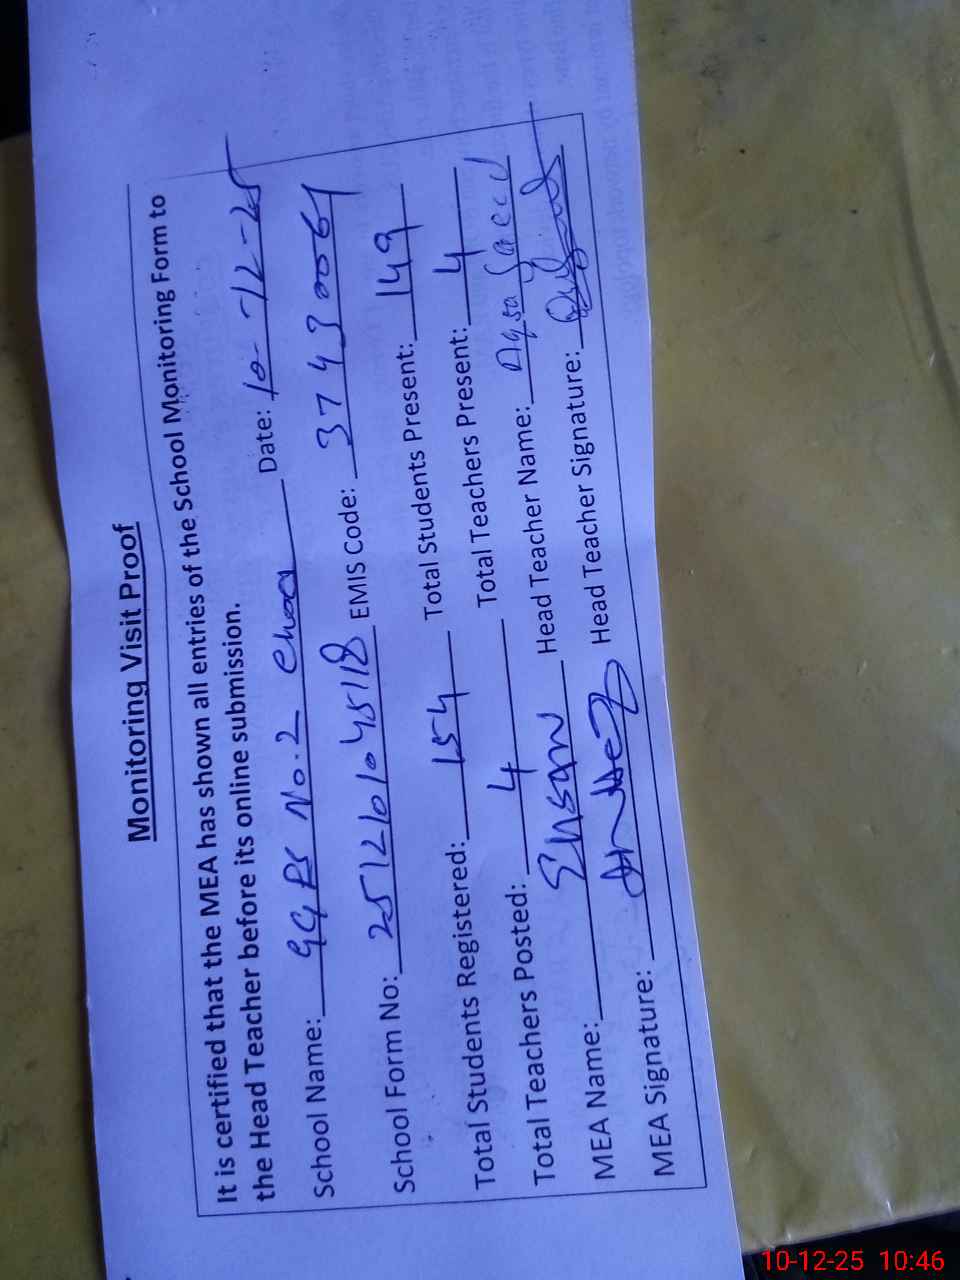 Monitoring Visit Proof
It is certified that the MEA has shown all entries of the School Monitoring Form to
the Head Teacher before its online submission.
School Name: GGPS No.2 Choa Date: 10-12-25
School Form No: 2512101045118 EMIS Code: 37430061
Total Students Registered: 154 Total Students Present: 149
Total Teachers Posted: 4 Total Teachers Present: 4
MEA Name: Ehsan Head Teacher Name: Aqsa Saeed
MEA Signature: Head Teacher Signature:
10-12-25 10:46